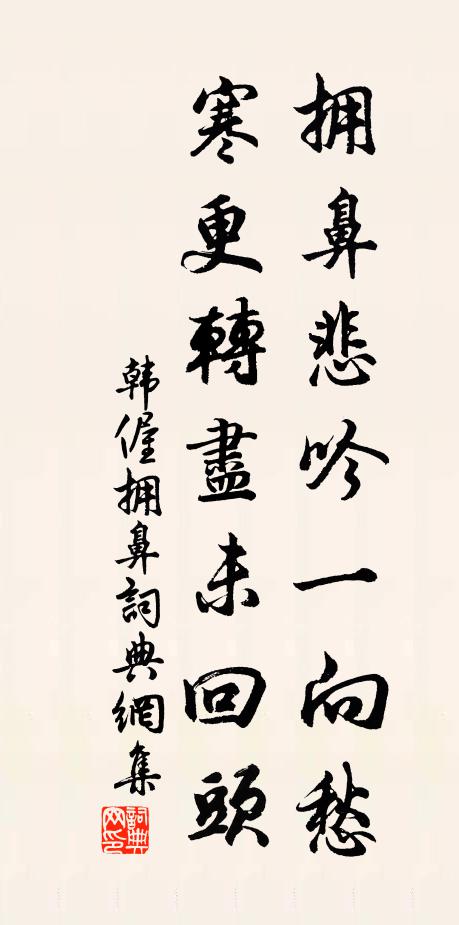 拥鼻悲吟一向愁
寒更轉盡未回頭
韩偓拥鼻詞典網集
詞典网印